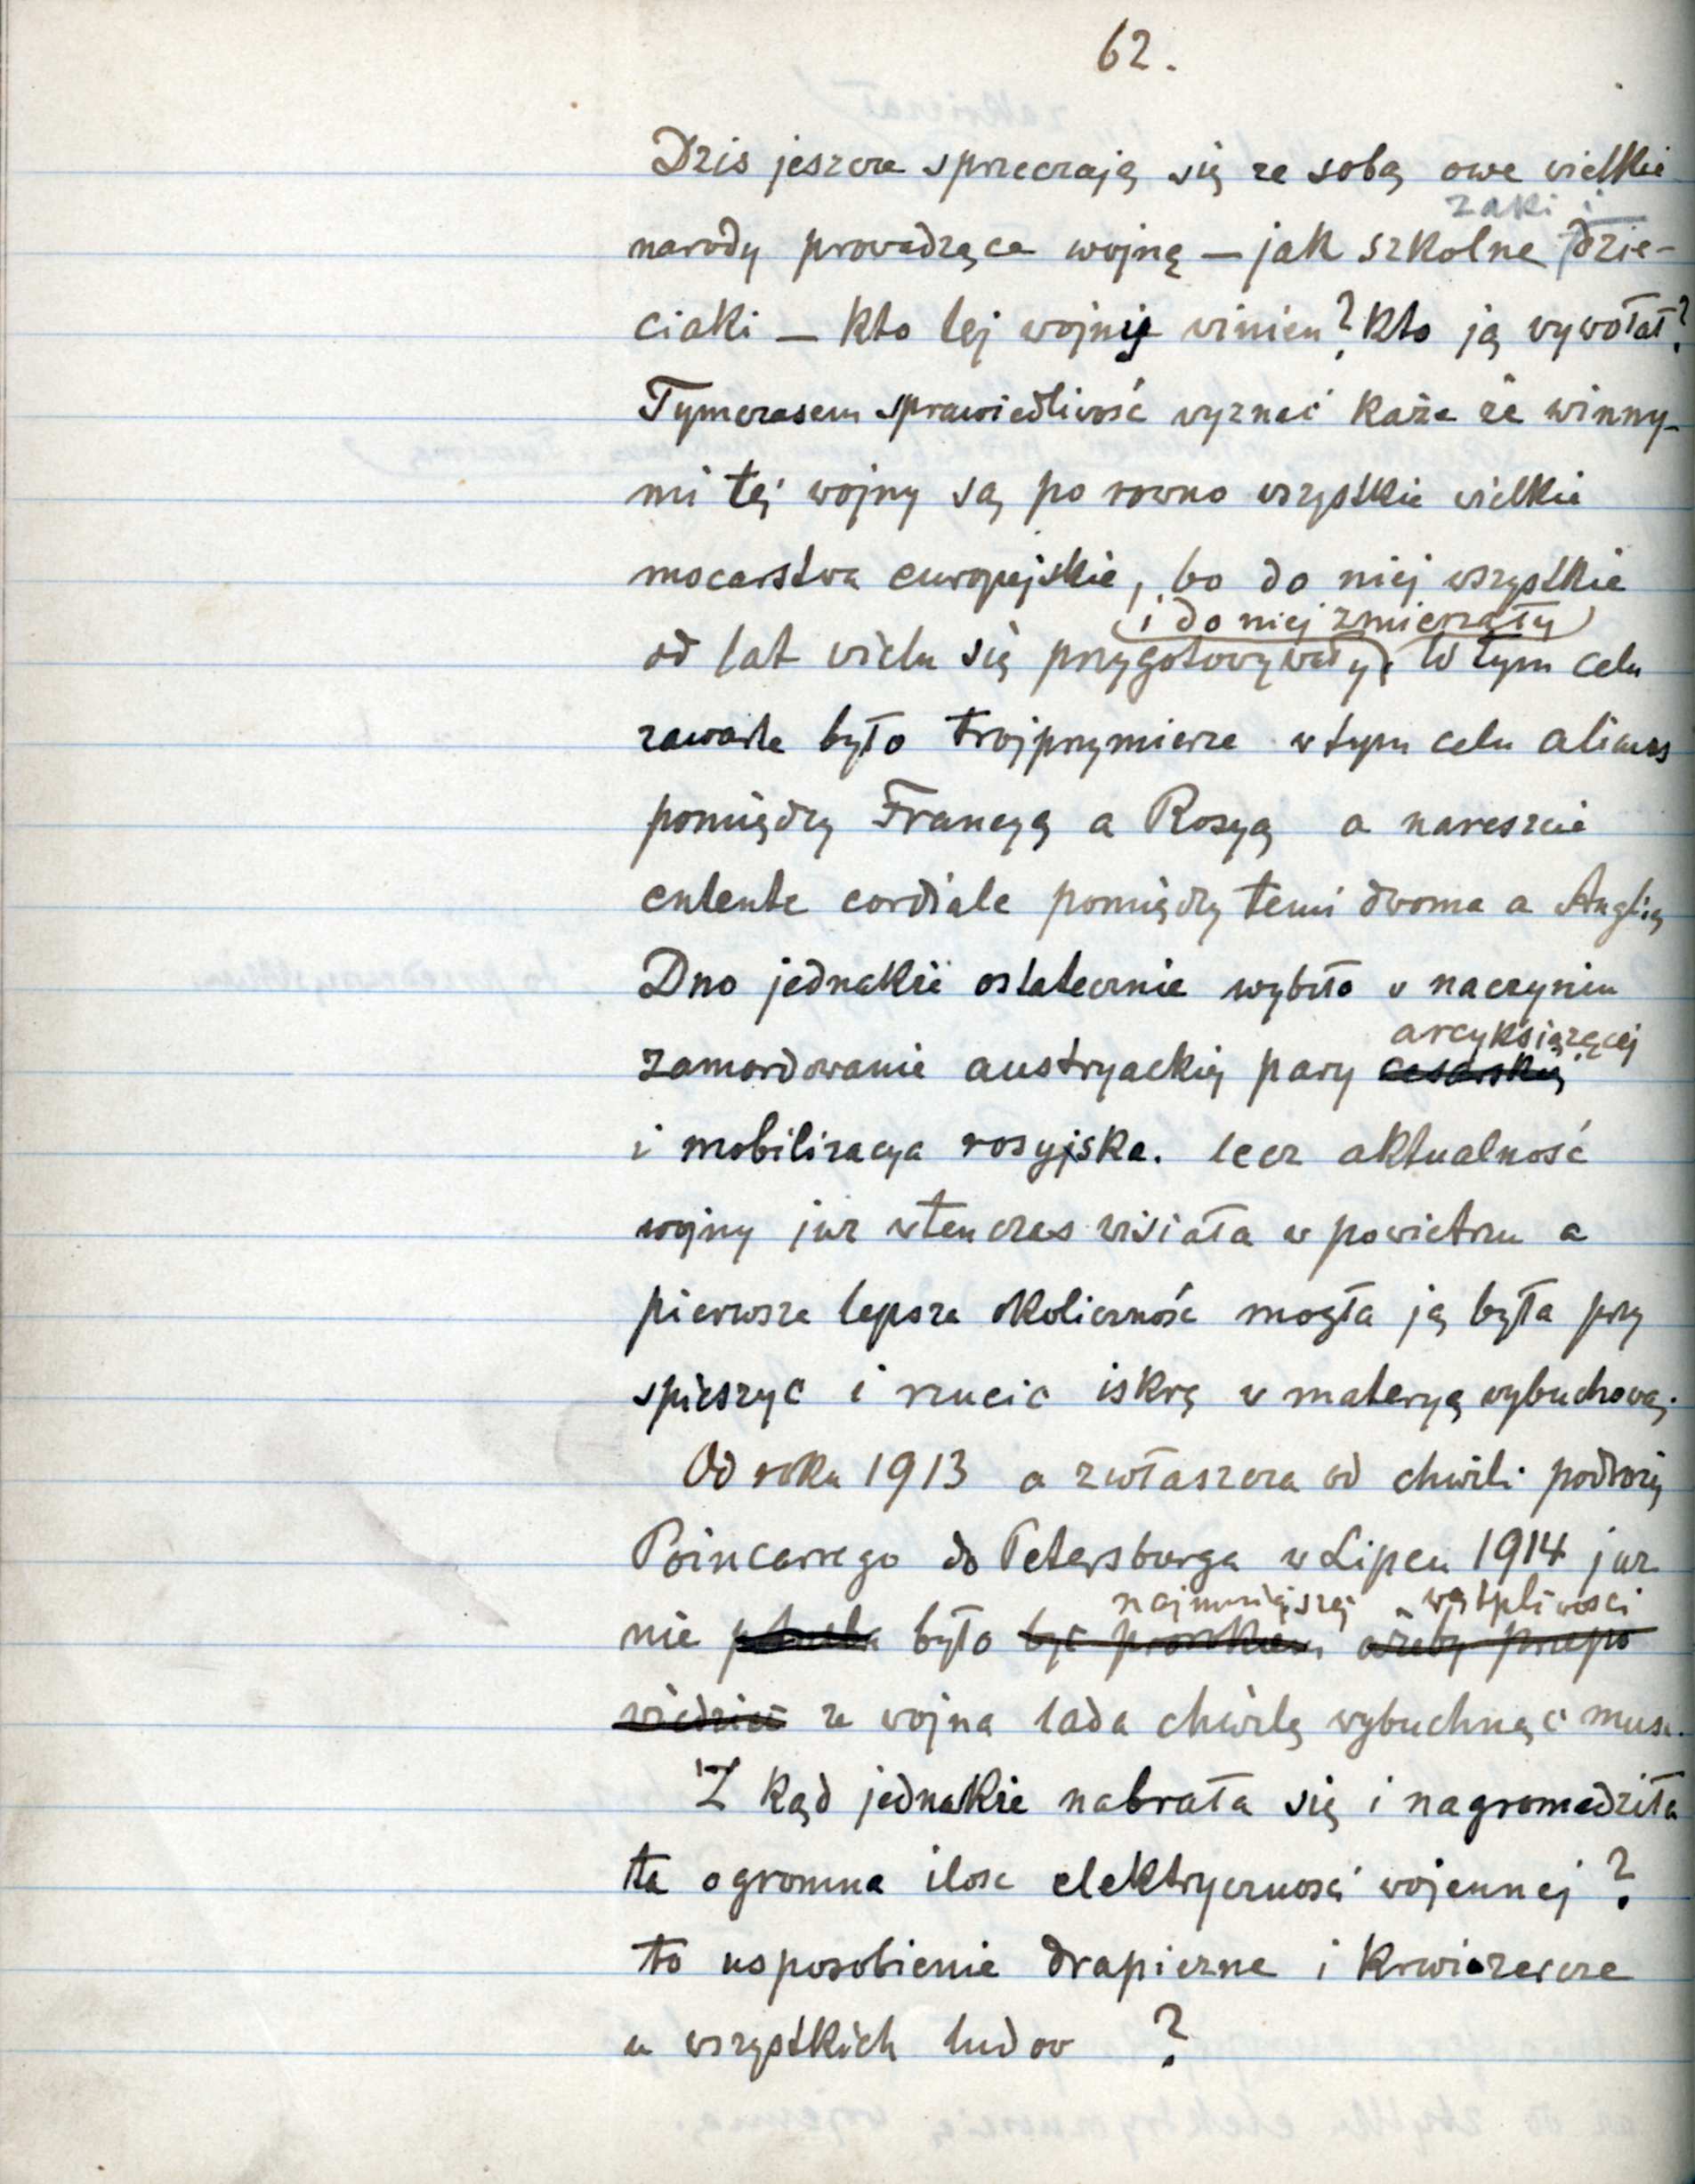 62.
Dzis jeszcze sprzeczają się ze sobą owe wielkie
żaki i
narody prowadzące wojnę — jak szkolne dzie-
ciaki — kto tej wojnie winien? kto ją wywołał?
Tymczasem sprawiedliwość wyznać każe że winny-
mi tej wojny są po rowno wszystkie wielkie
mocarstwa europejskie, bo do niej wszystkie
(i do niej zmierzały)
od lat wielu się przygotowywały. W tym celu
zawarte było trojprzymierze w tym celu alians
pomiędzy Francyą a Rosyą a nareszcie
entente cordiale pomiędzy temi dwoma a Anglią
Dno jednakże ostatecznie wybiło w naczyniu
arcyksiążęcej
zamordowanie austryackiej pary cesarskiej
i mobilizacya rosyjska. lecz aktualność
wojny juz wtenczas wisiała w powietrzu a
pierwsza lepsza okoliczność mogła ją była przy
spieszyc i rzucic iskrę w materyą wybuchową.
Od roku 1913 a zwłaszcza od chwili podroży
Poincarrego do Petersburga w Lipcu 1914 juz
najmniejszej wątpliwosci
nie było byc prorokiem ażeby przepo
wiedziec ze wojna lada chwilę wybuchnąc musi.
Z kąd jednakże nabrała się i nagromadziła
ta ogromna ilosc elektryczności wojennej?
to usposobienie drapieżne i krwiożercze
u wszystkich ludow ?